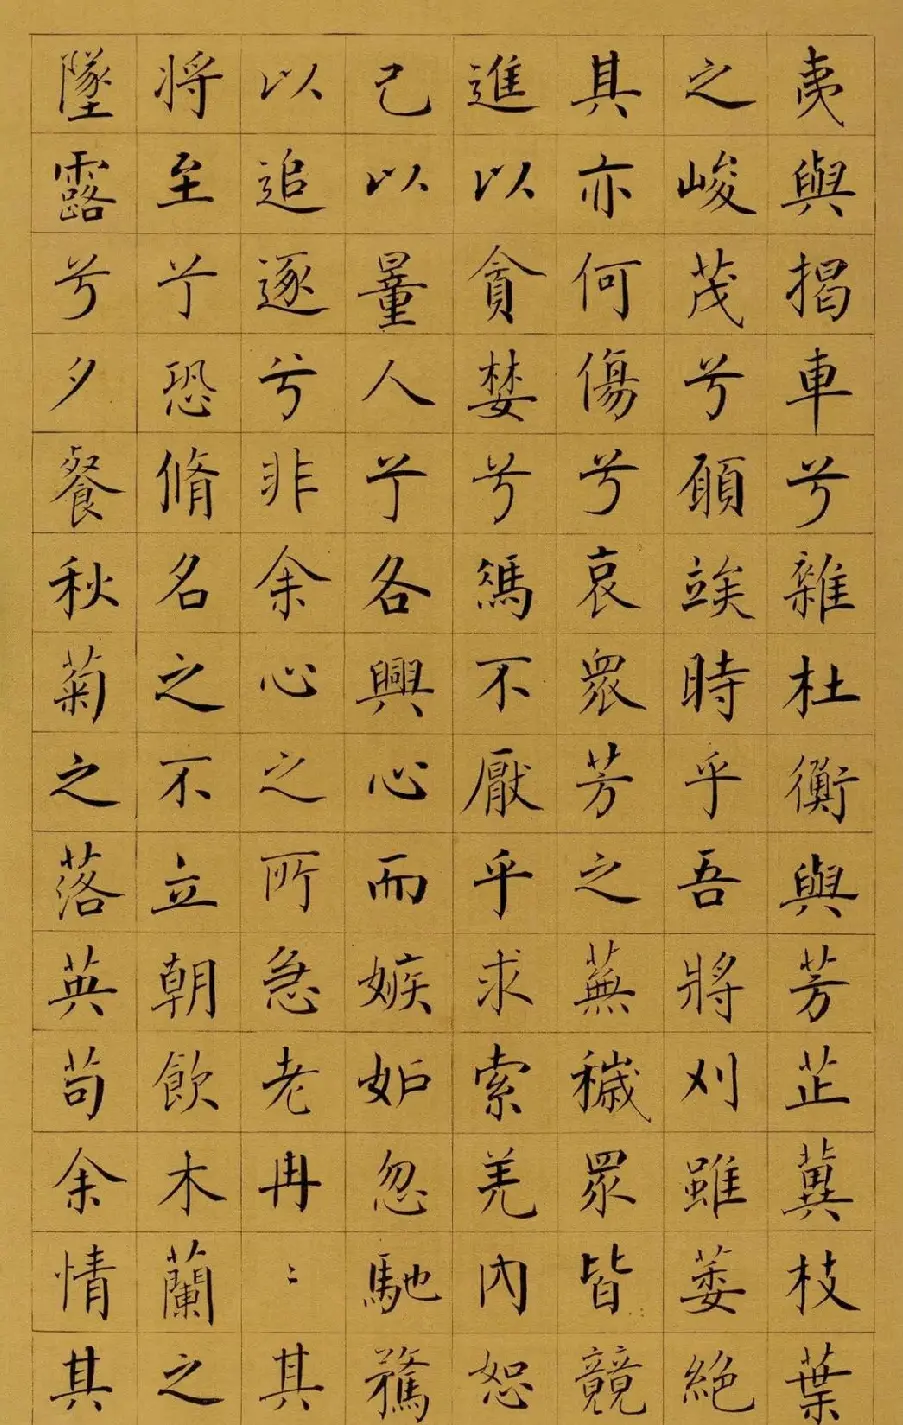 夷與揭車兮雜杜衡與芳芷冀枝葉
之峻茂兮願竢時乎吾將刈雖萎絕
其亦何傷兮哀衆芳之蕪穢眾皆競
進以貪婪兮馮不厭乎求索羌內恕
己以量人兮各興心而嫉妬忽馳騖
以追逐兮非余心之所急老冉〻其
將至兮恐脩名之不立朝飲木蘭之
墜露兮夕餐秋菊之落英苟余情其